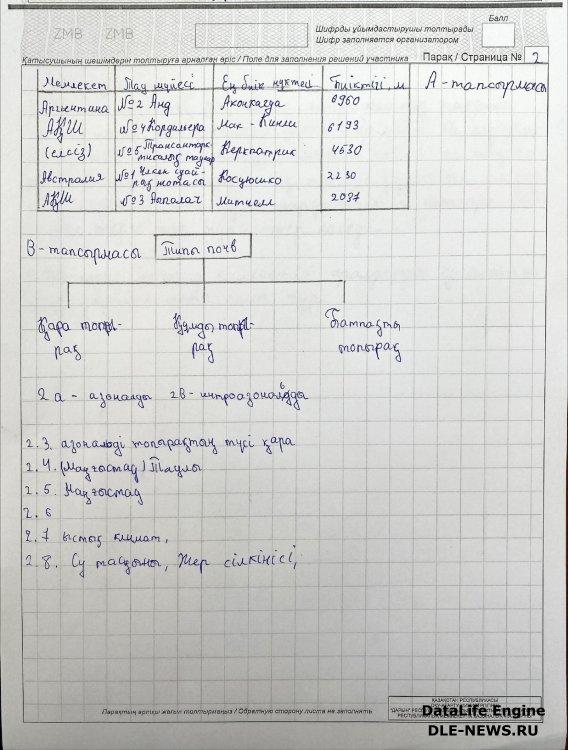 ZMB ZMB
Балл
Шифрды ұйымдастырушы толтырады
Шифр заполняется организатором
Қатысушының шешімдерін толтыруға арналған өріс / Поле для заполнения решений участника Парақ / Страница № 2
А-тапсырмасы
Мемлекет Тау жүйесі Ең биік нүктесі Биіктігі, м
Аргентина №2 Анд Аконкагуа 6960
АҚШ №4 Кордильера Мак-Кинли 6193
(елсіз) №5 Керкпатрик 4530
Австралия №1 Косцюшко 2230
АҚШ №3 Аппалач Митчелл 2037
В-тапсырмасы Типы почв
Қара топы-
рақ
Құмды топы-
рақ
Батпақты
топырақ
2а - азоналды 2в -
2.3. азональді топырақтың түсі қара
2.4. (Маңғыстау) Таулы
2.5. Маңғыстау
2.6
2.7 ыстық климат,
2.8. Су тасқыны, Жер сілкінісі,
Парақтың артқы жағын толтырмаңыз / Обратную сторону листа не заполнять
ҚАЗАҚСТАН РЕСПУБЛИКАСЫ
DataLife Engine
DLE-NEWS.RU